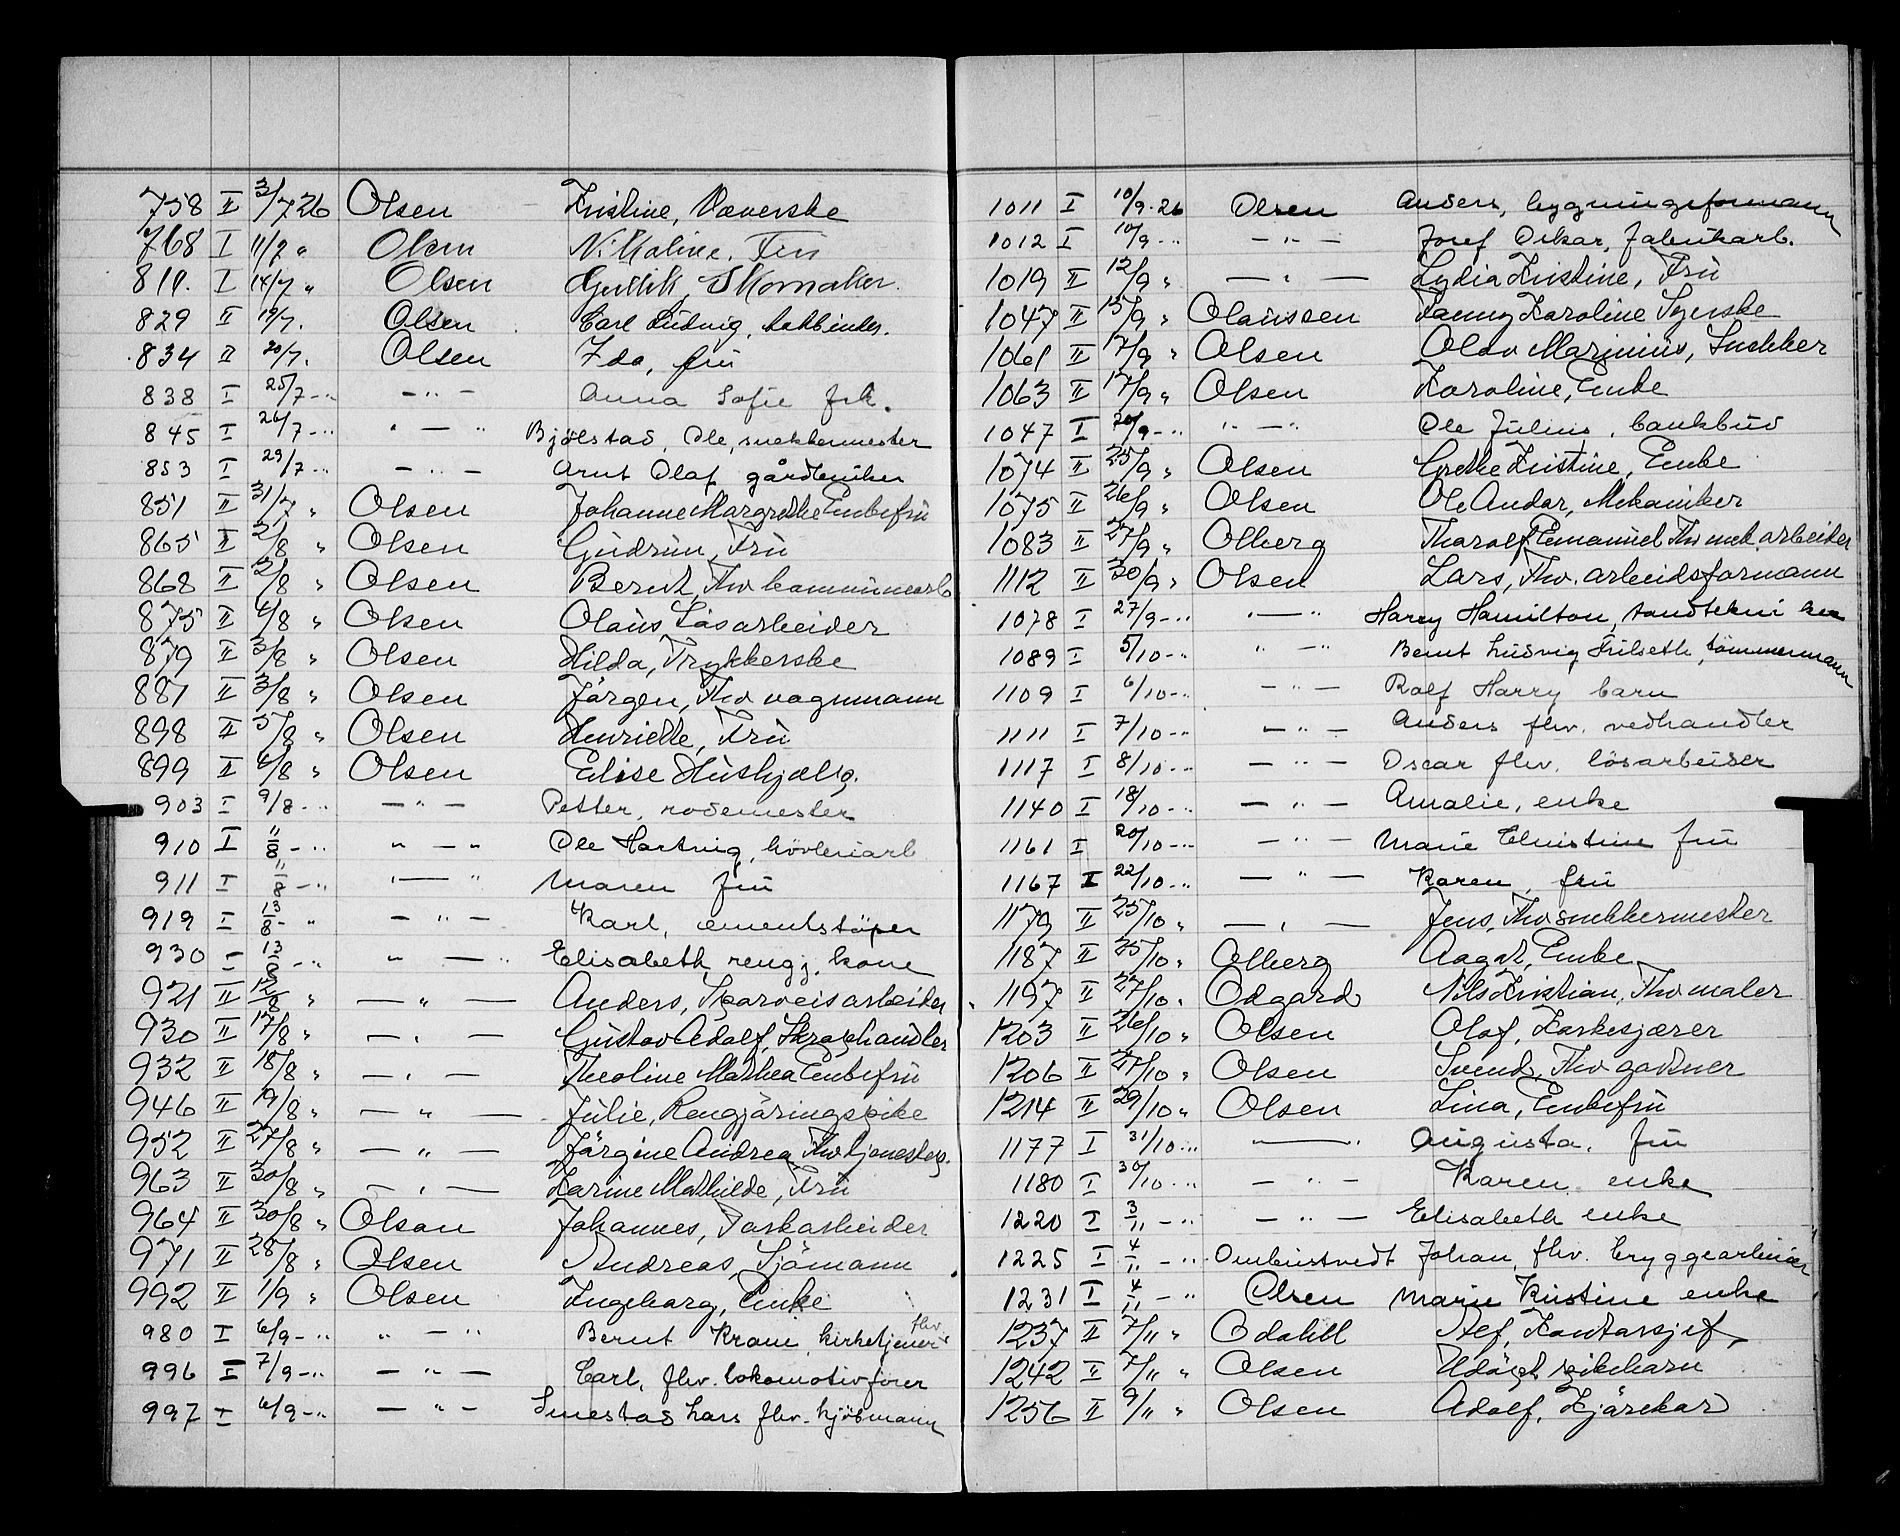 758 II 3/7 26 Olsen Kristine, Væverske
768 I 11/7 " Olsen Nikoline, Fru
811. I 14/7 " Olsen Gullik, Skomaker.
829 II 19/7. Olsen Carl Ludvig,
834 II 20/7. Olsen Ida, fru
838 I 25/7 - " - " - Anna Sofie frk.
845 I 26/7 - " " - " Bjölstad, Ole, snekkermester
853 I 29/7 - " - " - Arnt Olaf gårdbruker
851 II 31/7 " Olsen Johanne Margrethe Enkefru
865 II 2/8 " Olsen Gudrun, Fru
868 II 2/8 " Olsen Bernt, Fhv kommunearb
875 II 4/8 " Olsen Olaus Løsarbeider
879 II 3/8 " Olsen Hilda, Trykkerske
881 II 3/8 " Olsen Jörgen, Fhv vognmann
898 II 5/8 " Olsen Henriette, Fru
899 II 6/8 " Olsen Elise Hushjelp,
903 I 9/8 - " - " - Petter, rodemester
910 I 11/8 - " " - " Ole Hartvig, hövleriarb
911 I 11/8 - " " - " Maren fru
919 I 13/8 - " - " - Karl, cementstöper
930 I 13/8 - " " - " Elisabeth, rengj. kone
921 II 12/8 " - " - Anders, Sporveisarbeider
930 II 17/8 " - " - Gustav Adolf, Skraphandler
932 II 18/8 " - " - Theoline Mathea Enkefru
946 II 19/8 " - " - Julie, Rengjöringspike
952 II 27/8 " - " - Jörgine Andrea Fhv tjenestep.
963 II 30/8 " - " - Karine Mathilde, Fru
964 II 30/8 " Olsen Johannes, Torkarbeider
971 II 28/8 " Olsen Andreas, Sjömann
992 II 1/9 " Olsen Ingeborg, Enke
980 I 6/9 - " " - " Bernt Krani, fhv. kirketjener
996 I 7/9 - " - " - Carl, fhv. lokomotivförer
997 I 6/9 - " - " - Smestad Lars fhv. kjöbmann
1011 I 10/9 - 26 Olsen Anders, bygningsformann
1012 I 10/9 - " - " - Josef Oskar, fabrikarb.
1019 II 12/9 " - " - Lydia Kristine, Fru
1047 II 15/9 " Olaussen Fanny Karoline Syerske
1061 II 17/9 " Olsen Olav Marinius, Snekker
1063 II 17/9 " Olsen Karoline, Enke
1047 I 20/9 - " " - " Ole Julius, bankbud
1074 II 25/9 " Olsen Grethe Kristine, Enke
1075 II 26/9 " Olsen Ole Andor, Mekaniker
1083 II 27/9 " Olberg Tharalf Emanuel Fhv mek. arbeider
1112 II 30/9 " Olsen Lars, Fhv. arbeidsformann
1078 I 27/9 - " " - " Harry Hamilton, tandtekniker
1089 I 5/10 - " " - " Bernt Ludvig Fulseth, tömmermann
1109 I 6/10 - " - " - Rolf Harry barn
1111 I 7/10 - " - " - Anders fhv. vedhandler
1117 I 8/10 - " - " - Oscar fhv. lösarbeider
1140 I 18/10 - " - " - Amalie, enke
1161 I 20/10 - " - " - Marie Elnistine fru
1167 I 22/10 - " - " - Karen, fru
1179 II 25/10 " - " - Jens, Fhv snekkermester
1187 II 25/10 " Olberg Aagot, Enke
1197 II 27/10 " Odgard Nils Kristian, Fhv maler
1203 II 26/10 " Olsen Olaf, Korkskjærer
1206 II 27/10 " Olsen Svend, Fhv gartner
1214 II 29/10 " Olsen Lina, Enkefru
1177 I 31/10 - " - " Augusta, fru
1180 I 30/10 - " - " - Karen, enke
1220 I 3/11 - " - " - Elisabeth enke
1225 I 4/11 - " Ombustvedt Johan, fhv. bryggearbeider
1231 I 4/11 - " Olsen Marie Kristine enke
1237 II 7/11 " Odahll Alf, Kontorsjef
1242 II 7/11 " Olsen Udöpt pikebarn
1256 II 9/11 " Olsen Adolf, Kjörekar